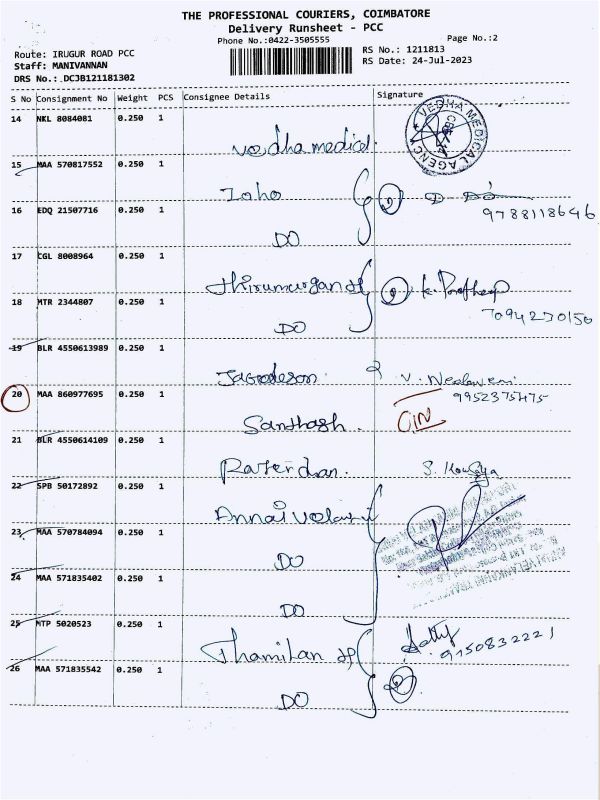 THE PROFESSIONAL COURIERS, COIMBATORE
Delivery Runsheet - PCC
Phone No.:0422-3505555
Page No.:2
Route: IRUGUR ROAD PCC
RS No.: 1211813
Staff: MANIVANNAN
RS Date: 24-Jul-2023
DRS No.: DCJB121181302
S No Consignment No Weight PCS Consignee Details Signature
14 NKL 8084081 0.250 1
Vedha medical. VEDHA MEDICAL AGENCY
15 MAA 570817552 0.250 1
Zoho
9788118646
16 EDQ 21507716 0.250 1
DO
17 CGL 8008964 0.250 1
Thirumurgan
7094270150
18 MTR 2344807 0.250 1
DO
19 BLR 4550613989 0.250 1
9952375475
20 MAA 860977695 0.250 1
Santhosh.
21 BLR 4550614109 0.250 1
22 SPB 50172892 0.250 1
23 MAA 570784094 0.250 1
DO
24 MAA 571835402 0.250 1
DO
25 NTP 5020523 0.250 1
Thamilan
9150832221
26 MAA 571835542 0.250 1
DO